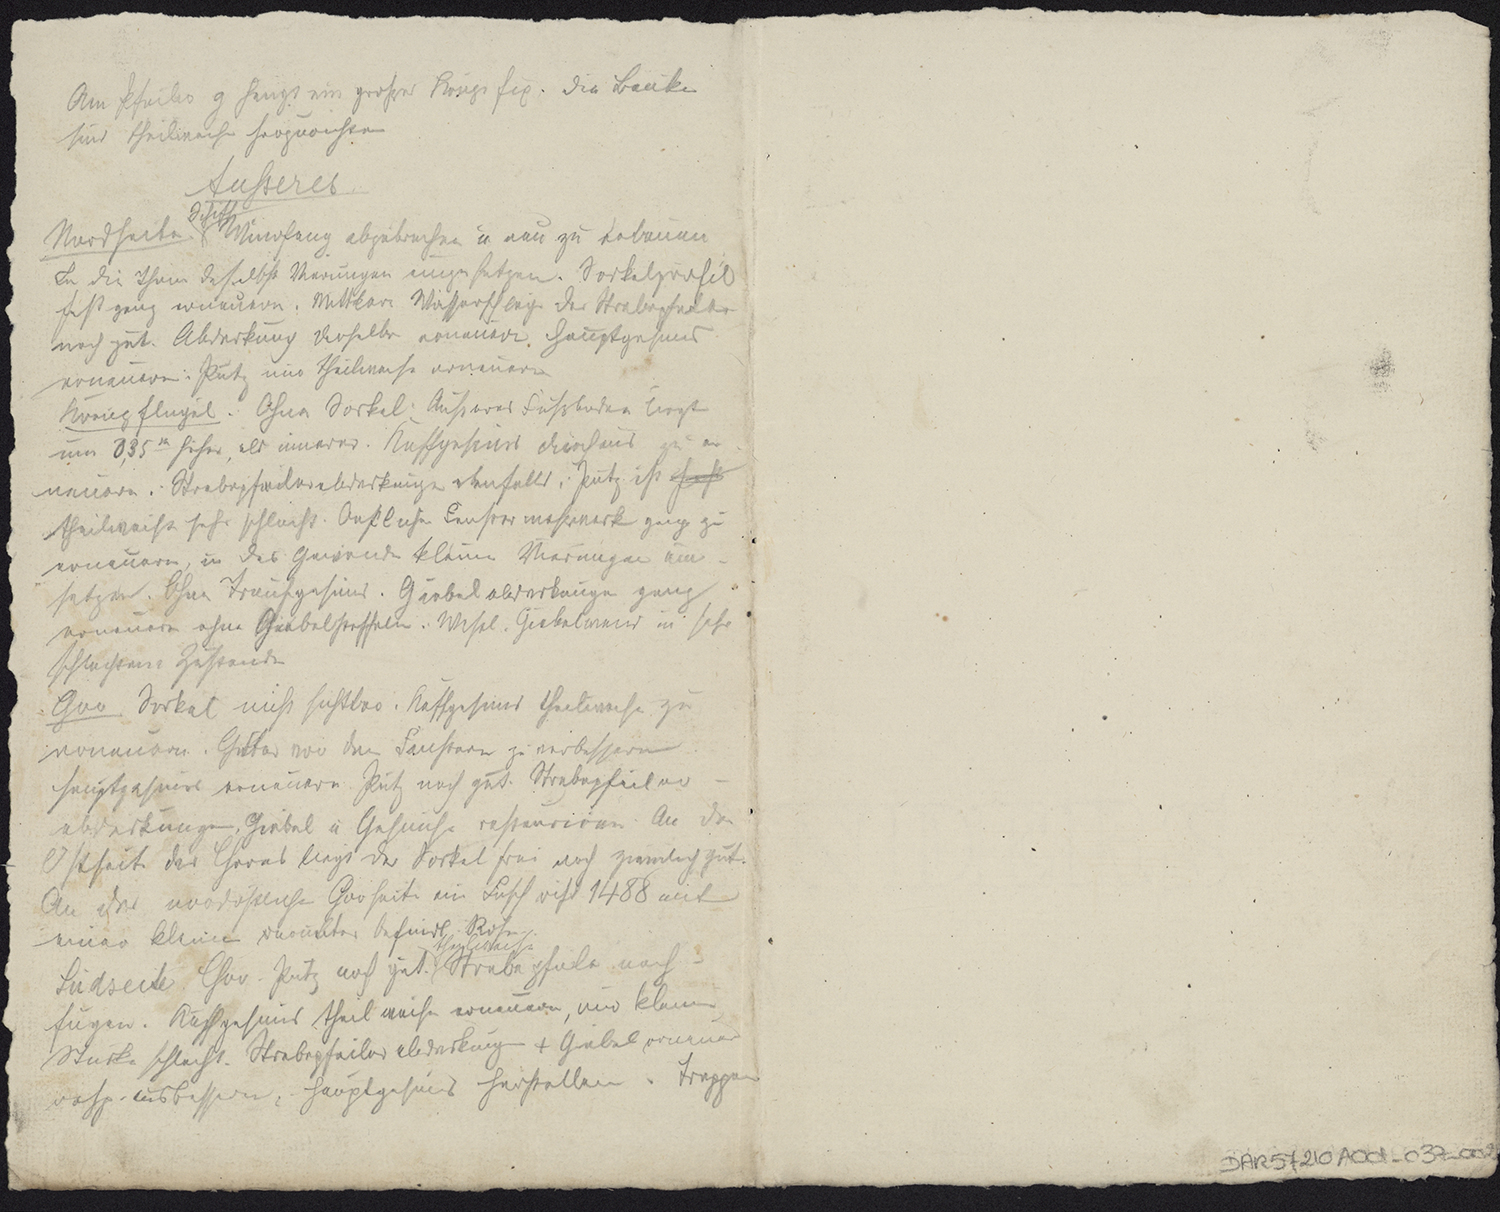 Am Pfeiler g hengt ein großer Kruzifix. Die Baenke
sind theilweise herzurichten
Äußeres
Schiff
Nordseite Windfang abzubrechen u neu zu erbauen
In die Thüre daselbst Vierungen einzusetzen. Sockelprofil
fast ganz erneuern. Mittlere Wasserschläge der Strebepfeiler
noch gut. Abdeckung derselben erneuern. Hauptgesims
erneuern. Putz nur theilweise erneuern
Kreuzflügel. Ohne Sockel. Äusserer Fussboden liegt
um 0,35 m höher, als innerer. Kaffgesims durchaus zu er
neuern. Strebepfeilerabdeckungen ebenfalls. Putz ist
theilweise sehr schlecht. Oestliches Fenstermaßwerk ganz zu
erneuern, in das Gewände kleine Vierungen ein-
setzen. Ohne Traufgesims. Giebelabdeckungen ganz
erneuern ohne Giebelstaffeln. Westl. Giebelwand in sehr
schlechtem Zustande
Chor Sockel nicht sichtbar. Kaffgesims theilweise zu
erneuern. Gitter vor den Fenstern zu verbessern
Hauptgesims erneuern Putz noch gut. Strebepfeiler-
abdeckungen, Giebel u Gesimse restaurieren. An der
Ostseite des Chores liegt der Sockel frei noch ziemlich gut.
An der nordöstlichen Chorseite ein 1488 mit
einer kleinen darunter befindl. Rose.
theilweise
Südseite Chor. Putz noch gut. Strebepfeiler nach-
fugen. Kaffgesims theilweise erneuern, nur kleine
Stücke schlecht. Strebepfeilerabdeckung + Giebel erneuern
resp. ausbessern, Hauptgesims herstellen. Treppen
DAR57210A001-037-002